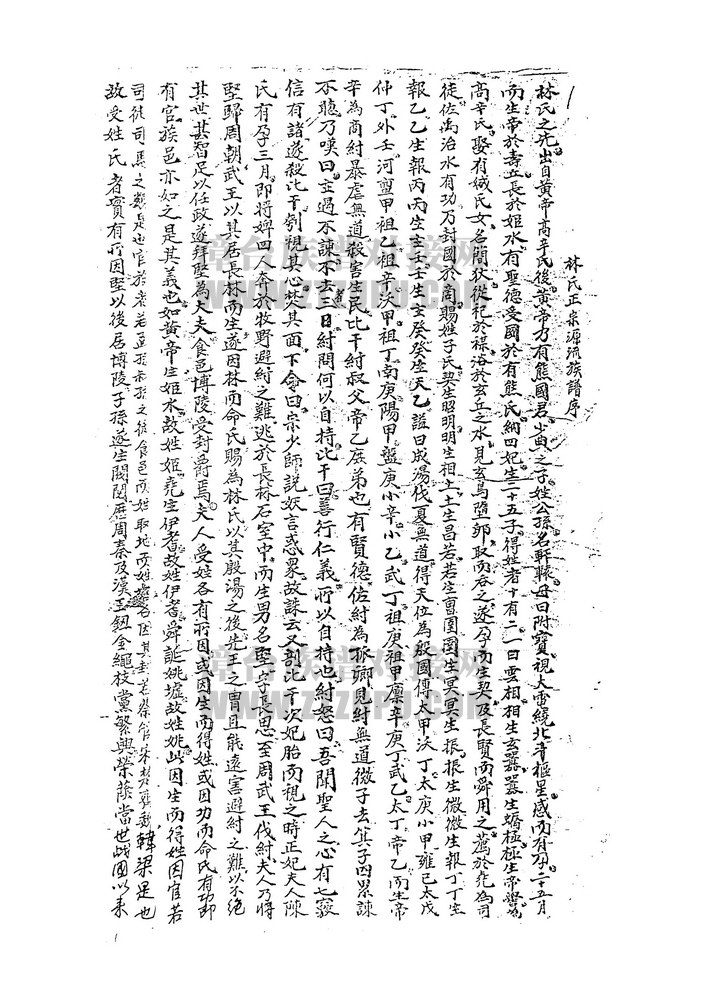 林氏正宗源流族譜序
林氏之先出自黃帝高辛氏後黃帝乃有熊國君少典之子姓公孫名軒轅母曰附寶視大電繞北斗樞星感而有孕二十五月
而生帝於壽丘長於姬水有聖德受國於有熊氏納四妃生二十五子得姓者十有二一曰雲相相生玄囂囂生蟜極極生帝嚳為
高辛氏娶有娀氏女名簡狄從祀於禖浴於玄丘之水見玄鳥墮卵取而吞之遂孕而生契及長賢而舜用之薦於堯為司
徒佐禹治水有功乃封國於商賜姓子氏契生昭明明生相土土生昌若若生曹圉圉生冥冥生振振生微微生報丁丁生
報乙乙生報丙丙生主壬壬生主癸癸生天乙謚曰成湯伐夏無道得天位為殷國傳太甲沃丁太庚小甲雍己太戊
仲丁外壬河亶甲祖乙祖辛沃甲祖丁南庚陽甲盤庚小辛小乙武丁祖庚祖甲廩辛庚丁武乙太丁帝乙而生帝
辛為商紂暴虐無道殺害生民比干紂叔父帝乙庶弟也有賢德佐紂為孤卿見紂無道微子去箕子囚累諫
不聽乃嘆曰主過不諫不去三日紂問何以自持比干曰善行仁義所以自持也紂怒曰吾聞聖人之心有七竅
信有諸遂殺比干刳視其心焚其面下令曰宗少師說妖言惑眾故誅云又剖比干次妃胎而視之時正妃夫人陳
氏有孕三月即將婢四人奔於牧野避紂之難逃於長林石室中而生男名堅字長思至周武王伐紂夫人乃將
堅歸周朝武王以其居長林而生遂因林而命氏賜為林氏以其殷湯之後先王之胄且能遠害避紂之難以不絕
其世其智足以任政遂拜堅為大夫食邑博陵受封爵焉夫人受姓各有所因或因生而得姓或因功而命氏有功即
有官族邑亦如之是其義也如黃帝生姬水故姓姬堯生伊耆故姓伊耆舜誕姚墟故姓姚此因生而得姓因官若
司徒司馬之類是也官於者若孟孫叔孫之後食邑而姓取地而姓名因其封若蔡管宋楚韓梁是也
故受姓氏者實有所因堅以後居博陵子孫遂生閥閱歷周秦及漢玉鈕金繩枝黨繁興榮蔭當世此國以來
章台族谱对接网
WWW.ZTZUPU.COM
章台族谱对接网
WWW.ZTZUPU.COM